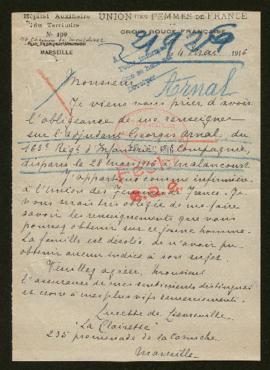 Hôpital Auxiliaire
UNION DES FEMMES DE FRANCE
15e Territoire
CROIX ROUGE FRANÇAISE
No 109
MARSEILLE
1916
Monsieur
Arnal
Je viens vous prier d'avoir
l'obligeance de me renseigner
sur l'adjudant Georges Arnal, du
163e Régt d'Infanterie, Compagnie,
disparu le 28 mai 1916 à Malancourt
J'appartiens comme infirmière
à l'Union des Femmes de France. Je
vous serais très obligée de me faire
savoir les renseignements que vous
pourrez obtenir sur ce jeune homme.
La famille est désolée de n'avoir pu
obtenir aucun indice à son sujet.
Veuillez agréer, Monsieur
l'assurance de mes sentiments distingués
et croire à mes plus vifs remerciements.
Lucette de
"La Clairette"
235 promenade de la Corniche
Marseille